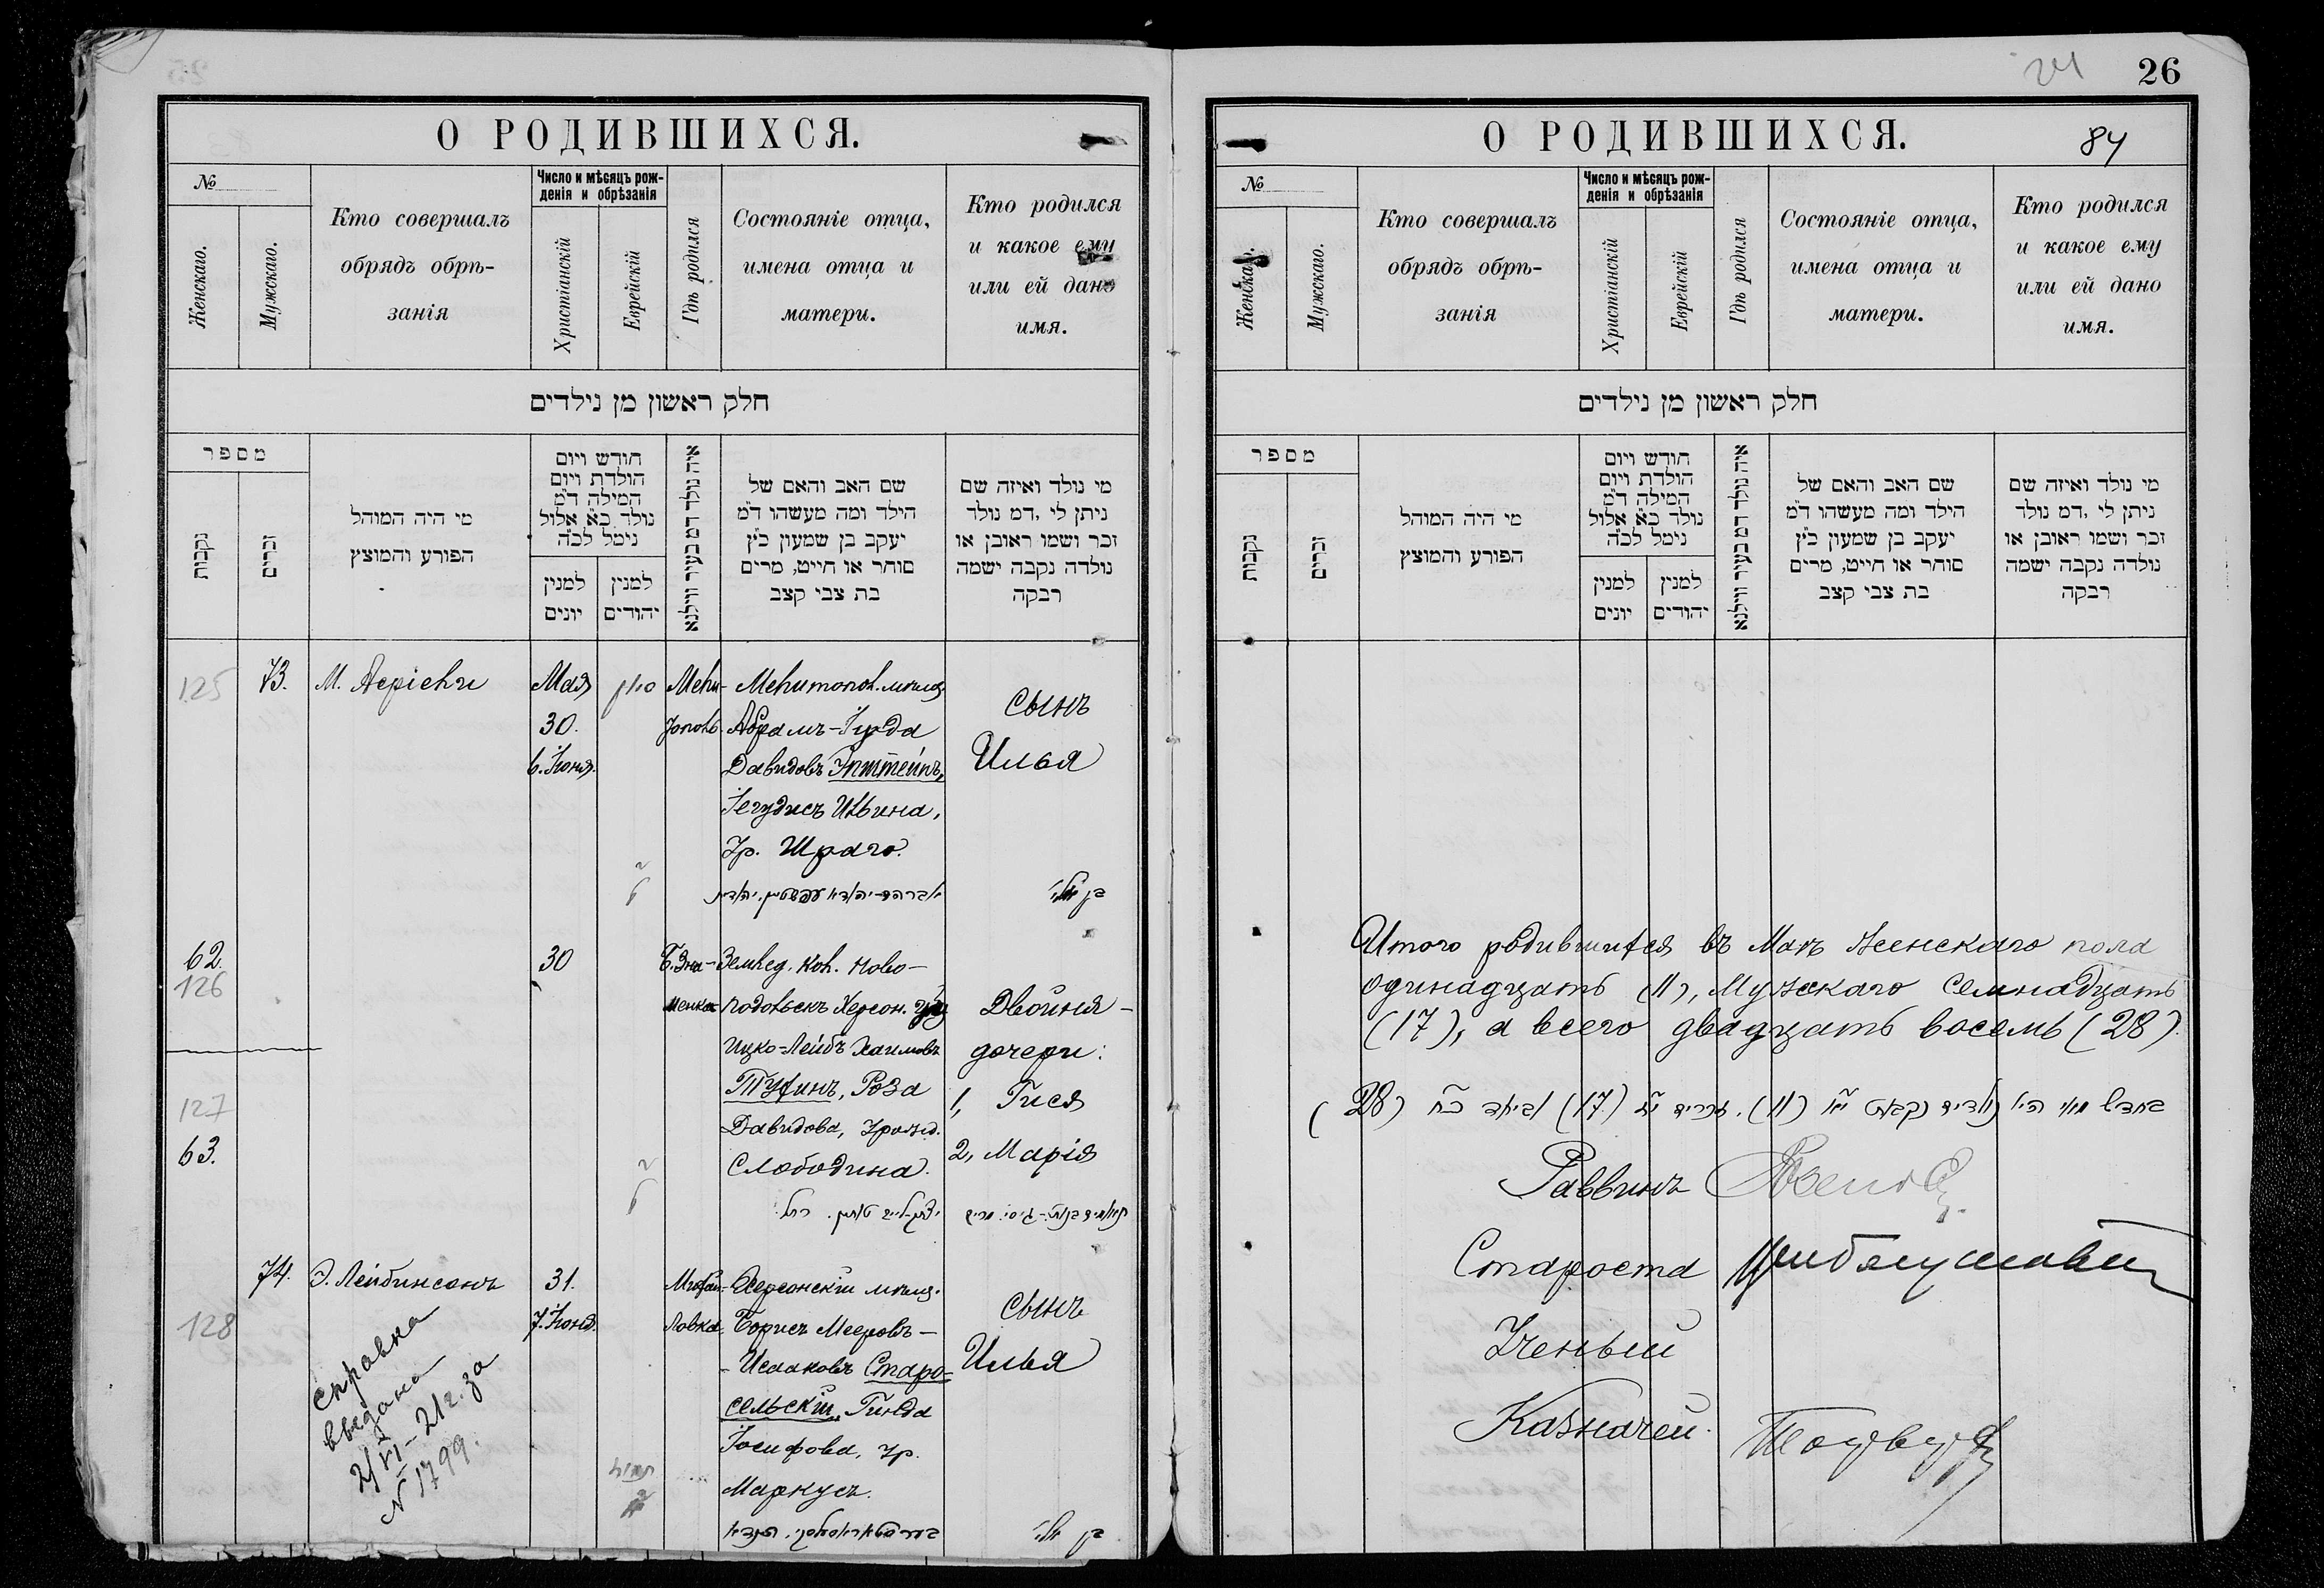 О РОДИВШИХСЯ.
№
Женскаго.
Мужскаго.
Кто совершалъ
обрядъ обрѣ-
занія
Число и мѣсяцъ рож-
денія и обрѣзанія
Христіанскій
Еврейскій
Гдѣ родился
Состояніе отца,
имена отца и
матери.
Кто родился
и какое ему
или ей дано
имя.
חלק ראשון מן נילדים
מספר
נקבות
זכרים
מי היה המוהל
הפורע והמוצץ
חודש ויום
הולדת ויום
המילה ד״מ
נולד כ״א אלול
נימל לכ״ה
למנין
יונים
למנין
יהודים
איה נולד דמ בעיר ווילנא
שם האב והאם של
הילד ומה מעשהו ד״מ
יעקב בן שמעון כ״ץ
סוחר או חייט, מרים
בת צבי קצב
מי נולד ואיזה שם
ניתן לי, דמ נולד
זכר ושמו ראובן או
נולדה נקבה ישמה
רבקה
125
73.
М. Аеріевъ
Мая
30.
6. Іюня.
סיון
Мели-
тополь.
Мелитопол. мѣщ.
Абрамъ-Іуда
Давидовъ Эпштейнъ,
Іегудисъ Ильина,
Ур. Шраго.
сынъ
Илья
62.
126
127
63.
30
Б. Зна-
менка
Землед. кол. Ново-
подольскъ Херсон. губ
Ицко-Лейбъ Хаимовъ
Туфинъ, Роза
Давидова, Урожд.
Слободина.
Двойня -
дочери:
1, Гися
2, Марія
74.
128
Э. Лейбинсонъ
31.
7. Іюня.
Михай-
ловка
Херсонскій мѣщ.
Борисъ Мееровъ-
-Исааковъ Старо-
сельскій, Гинда
Іосифова, Ур.
Маркусъ.
сынъ
Илья
справка
выдана
2/VI-21г. за
№ 1799.
תמוז
24
26
О РОДИВШИХСЯ.
84
№
Женскаго.
Мужскаго.
Кто совершалъ
обрядъ обрѣ-
занія
Число и мѣсяцъ рож-
денія и обрѣзанія
Христіанскій
Еврейскій
Гдѣ родился
Состояніе отца,
имена отца и
матери.
Кто родился
и какое ему
или ей дано
имя.
חלק ראשון מן נילדים
מספר
נקבות
זכרים
מי היה המוהל
הפורע והמוצץ
חודש ויום
הולדת ויום
המילה ד״מ
נולד כ״א אלול
נימל לכ״ה
למנין
יונים
למנין
יהודים
איה נולד דמ בעיר ווילנא
שם האב והאם של
הילד ומה מעשהו ד״מ
יעקב בן שמעון כ״ץ
סוחר או חייט, מרים
בת צבי קצב
מי נולד ואיזה שם
ניתן לי, דמ נולד
זכר ושמו ראובן או
נולדה נקבה ישמה
רבקה
Итого родившихся въ Маѣ женскаго пола
одинадцать (11), мужскаго семнадцать
(17), а всего двадцать восемь (28).
Раввинъ
Староста
Ученый
Казначей.